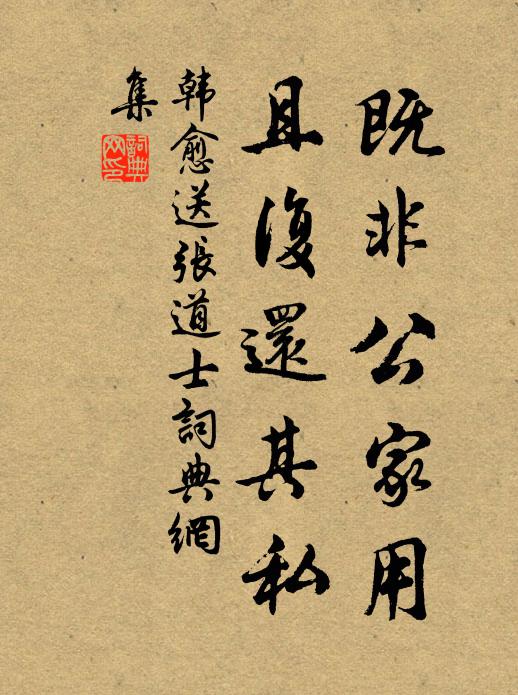 既非公家用
且復還其私
韓愈送張道士詞典網
集
詞典
网印